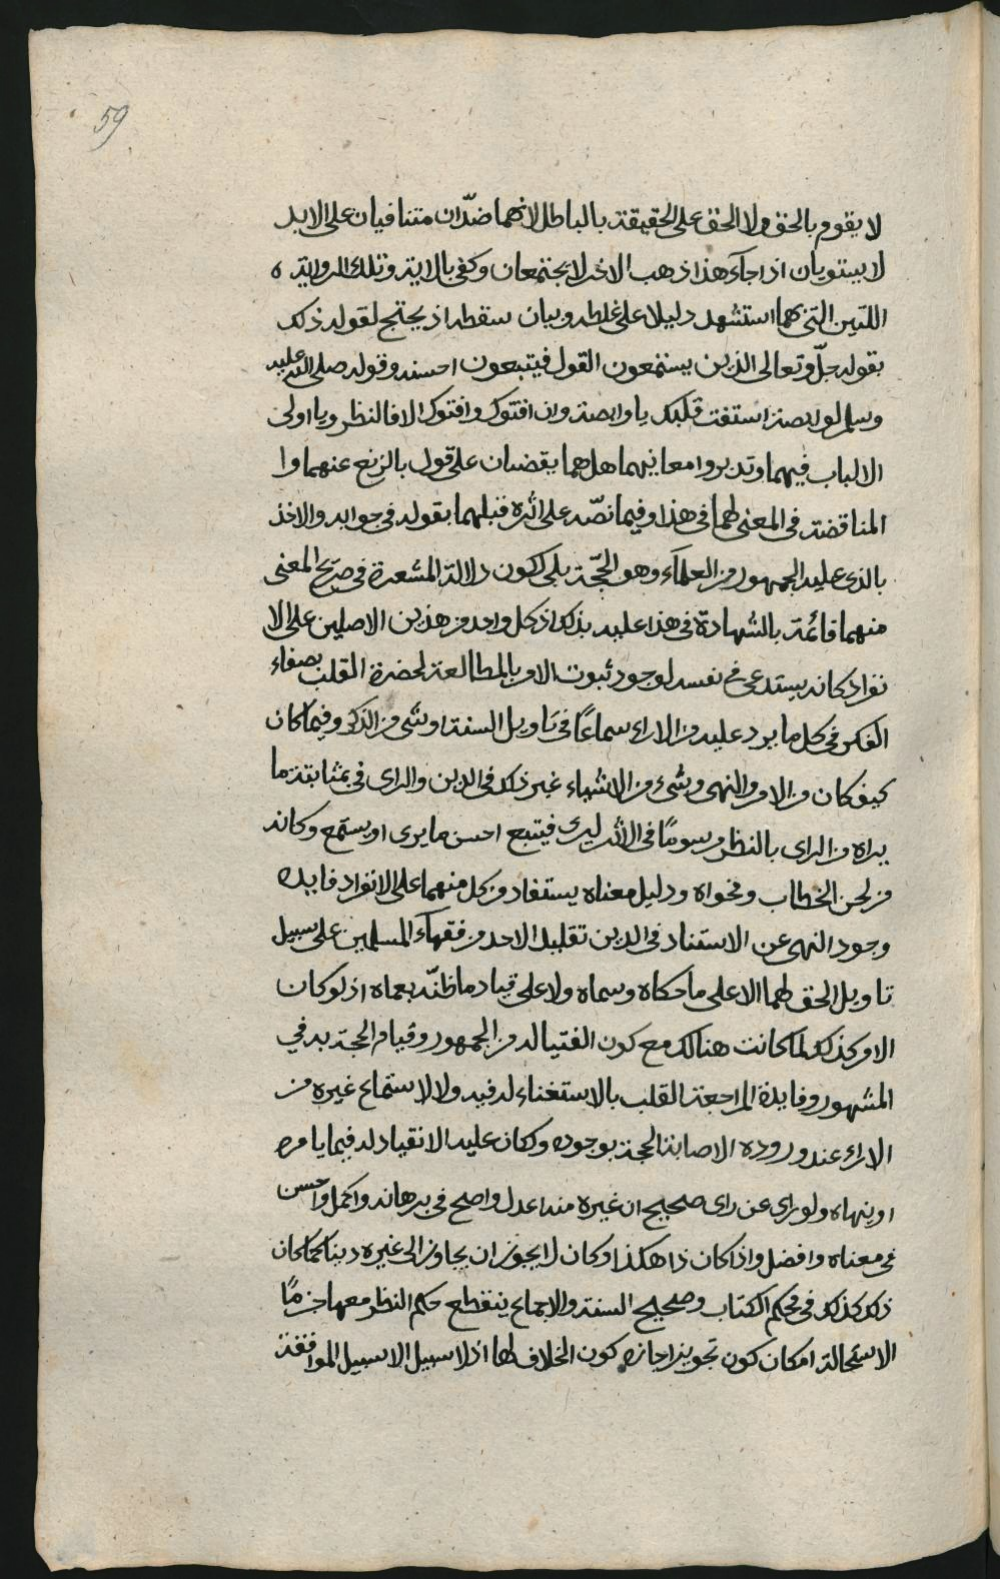 59
لا يقوم بالحق ولا الحق على الحقيقة بالباطل لانهما ضدّان متنافيان على الابد
لا يستويان اذا جآء هذا ذهب الاخر لا يجتمعان وكفى بالاية وتلك الرواية ه
اللتين التى بهما استشهد دليلا على غلطه وبيان سقطه اذ يحتج لقوله ذلك
بقوله جلّ وتعالى الذين يستمعون القول فيتبعون احسنه وقوله صلى الله عليه
وسلم لوابصة استفت قلبك يا وابصة وان افتوك وافتوك الا فالنظر ويا اولى
الالباب فيهما وتدبروا معانيهما هل هما يقضيان على قول بالرفع عنهما وا
المناقضة فى المعنى لهما فى هذا وفيما نصّه على اثره قبلهما بقوله فى جوابه والاخذ
بالذى عليه الجمهور من العلمآء وهو الحجّة بلى ككون دلالة المشعرة فى صريح المعنى
منهما قائمة بالشهادة فى هذا عليه بذلك اذ كل واحد من هذين الاصلين على الا
نفراد كانه يستدعى فى نفسه لوجود ثبوت الامر بالمطالعة لحضرة القلب بصفاء
الفكر فى كل ما يرد عليه من الاراء سماعًا فى تاويل السنة او شى من الذكر وفيما كان
كيف كان من الامر والنهى وشىء من الاشياء غير ذلك فى الدين والراى فى بمثابقة ما
يراه من الراى بالنظر مرسومًا فى الاثر ليرى فيتبع احسن ما يرى او يستمع وكانه
من لحن الخطاب وفحواه ودليل معناه يستفاد من كل منهما على الانفراد فايده
وجود النهى عن الاستناد فى الدين تقليدا لاحد من فقهآء المسلمين على سبيل
تاويل الحق لهما الا على ما حكاه وسماه ولا على قياد ما ظنّه بعماه اذ لو كان
الامر كذلك لما كانت هنالك مع كون الفتيا له من الجمهور وقيام الحجة به في
المشهور وفايدة المراجعة القلب بالاستغناء له فيه ولا لاستماع غيره من
الاراء عند وروده الاصابة الحجة بوجوده وككان عليه الانقياد له فيما يامره
او ينهاه ولو راى عن راى صحيح ان غيره منه اعدل واصح فى برهانه واكمل واحسن
فى معناه وافضل واذا كان ذا هكذا وكان لا يجوز ان يجاوز الى غيره دينا كما كان
ذلك كذلك فى محكم الكتاب وصحيح السنة والاجماع ينقطع حكم النظر معها جزمًا
الاستحالة امكان كون تجويز اجازه كون الخلاف لها اذ لا سبيل الا سبيل الموافقة